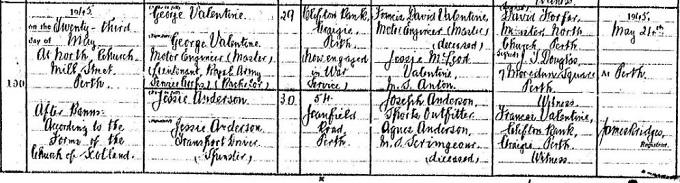 130
1945,
on the Twenty-third
day of May
At North Church
Mill Street
Perth
After Banns:
According to the
Forms of the
Church of Scotland.
George Valentine
George Valentine
Motor Engineer (Master)
Lieutenant, Royal Army
Service Corps (Bachelor)
Jessie Anderson.
Jessie Anderson.
Transport Driver
(Spinster)
29
30.
Clifton Bank,
Craigie,
Perth.
(Now engaged
in War
Service)
54
Jeanfield
Road,
Perth.
Francis David Valentine,
Motor Engineer (Master)
(deceased)
Jessie McLeod
Valentine.
M.S. Anton.
Joseph Anderson,
Sports Outfitter
Agnes Anderson,
M.S. Scrimgeour
(deceased)
Minister North
Church Perth
J. S. Douglas
Square
Perth
Witness
Francis Valentine,
Clifton Bank,
Craigie, Perth
Witness.
1945,
May 24th
At Perth.
James Bridges,
Registrar.